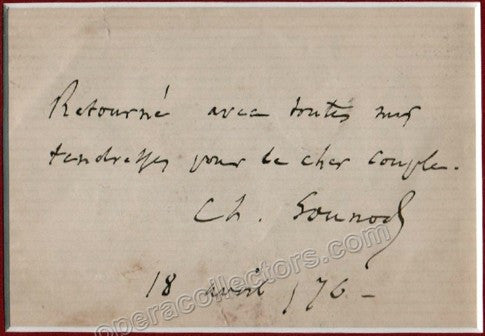 Retourné avec toutes mes
tendresses pour le cher couple.
Ch. Gounod
18 avril /76 —
operacollectors.com